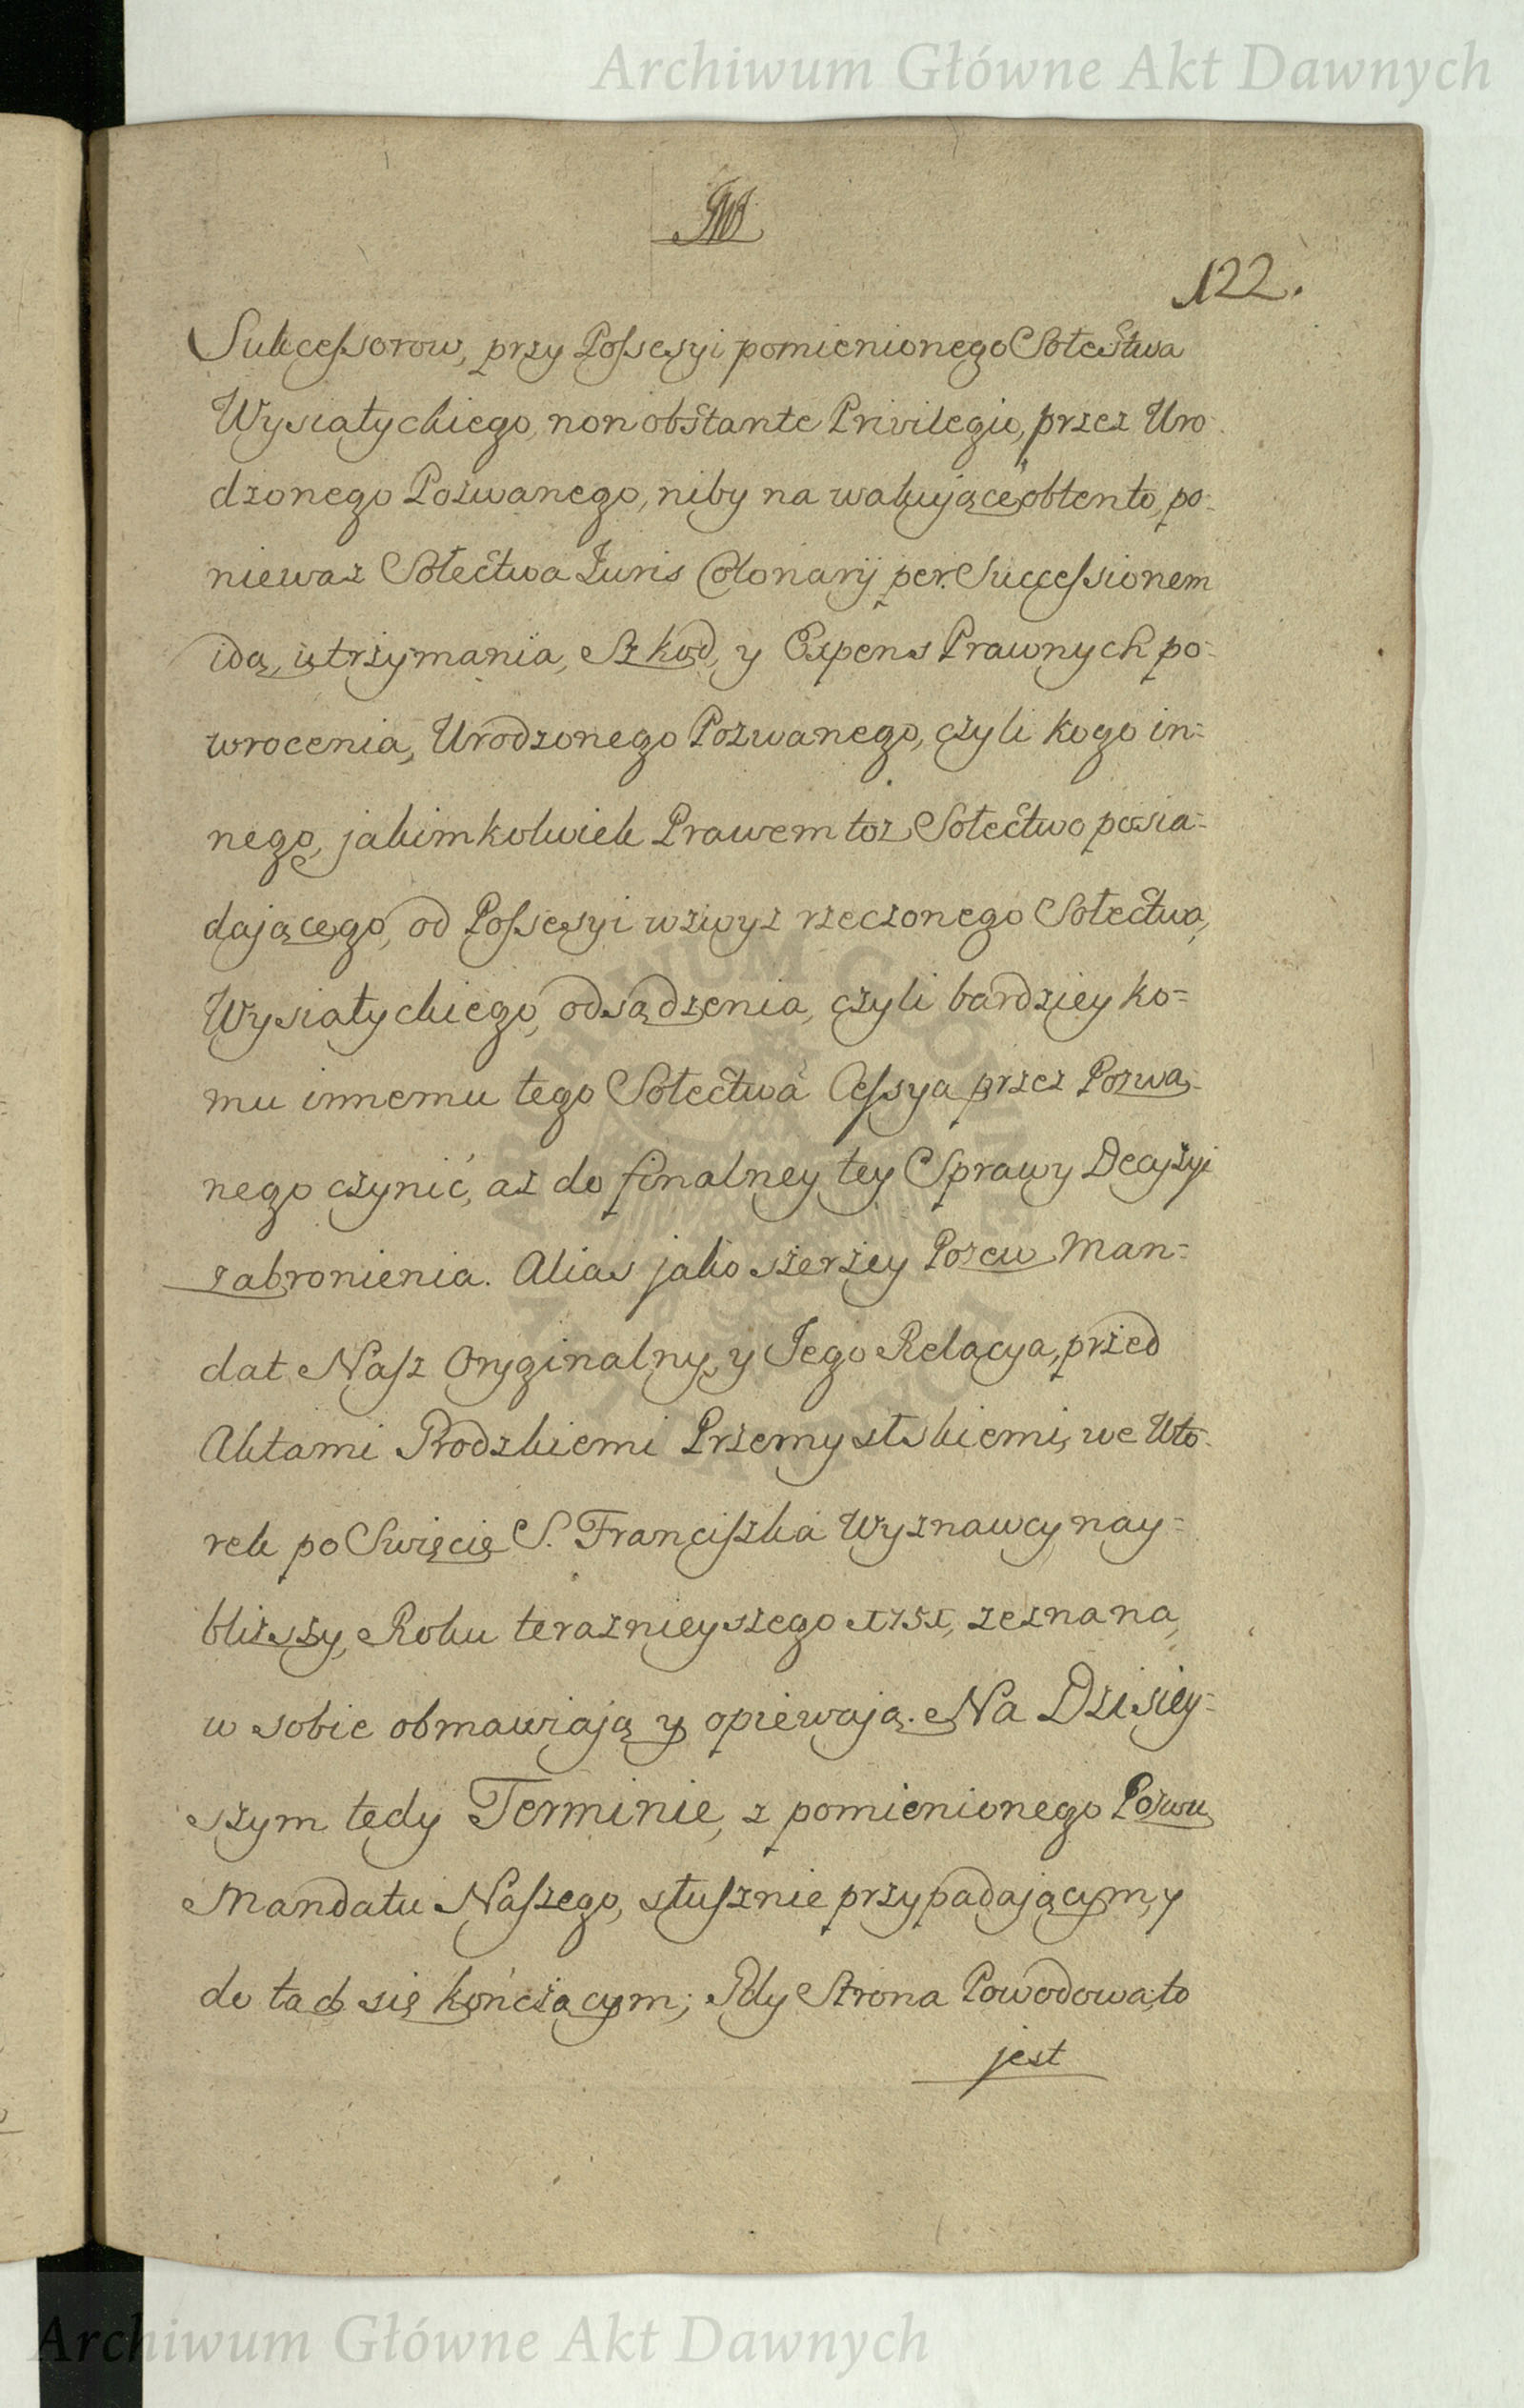 Archiwum Główne Akt Dawnych
122.
Sukcessorow, przy Possesyi pomienionego Sołectwa
Wysiatyckiego, non obstante Privilegio, przez Uro-
dzonego Pozwanego, niby na wakujące obtento, po-
niewaz Sołectwa Juris Colonarij per Successionem
idą, utrzymania, Szkod, y Expens Prawnych po-
wrocenia, Urodzonego Pozwanego, czyli kogo in=
nego, jakimkolwiek Prawem toz Sołectwo posia=
dającego, od Possesyi wzwyz rzeczonego Sołectwa,
Wysiatyckiego, odsądzenia, czyli bardziey ko=
mu innemu tego Sołectwa Cessya przez Pozwa-
nego czynić, az do finalney tey Sprawy Decyzyi
zabronienia. Alias jako szerzey Pozew Man=
dat Nasz Oryginalny, y Jego Relacya, przed
Aktami Grodzkiemi Przemyslskiemi, we Wto-
rek po Swięcie S. Franciszka Wyznawcy nay=
blizszy, Roku teraznieyszego 1751, zeznana,
w sobie obmawiają y opiewają. Na Dzisiey=
szym tedy Terminie, z pomienionego Pozwu
Mandatu Naszego, słusznie przypadającym, y
do tąd się kończącym; Gdy Strona Powodowa, to
jest
Archiwum Główne Akt Dawnych